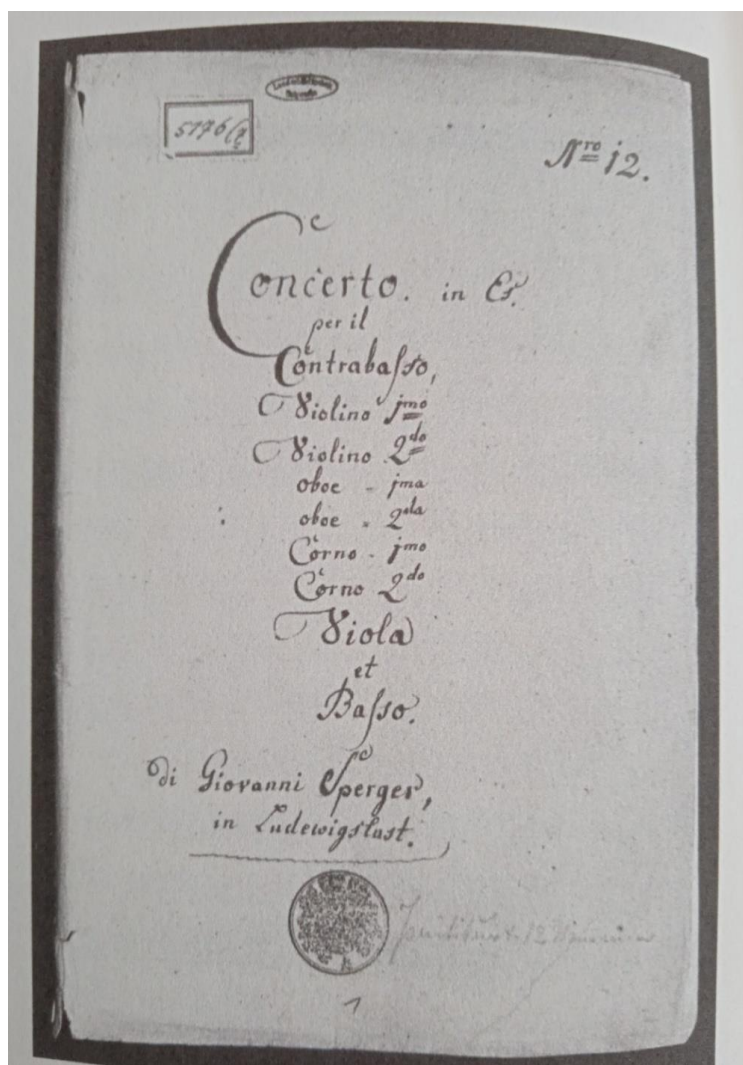 5176/9
Nro 12.
Concerto. in Es.
per il
Contrabasso,
Violino jmo
Violino 2do
oboe - jma
oboe - 2da
Corno - jmo
Corno 2do
Viola
et
Basso.
di Giovanni Sperger,
in Ludewigslust.
1